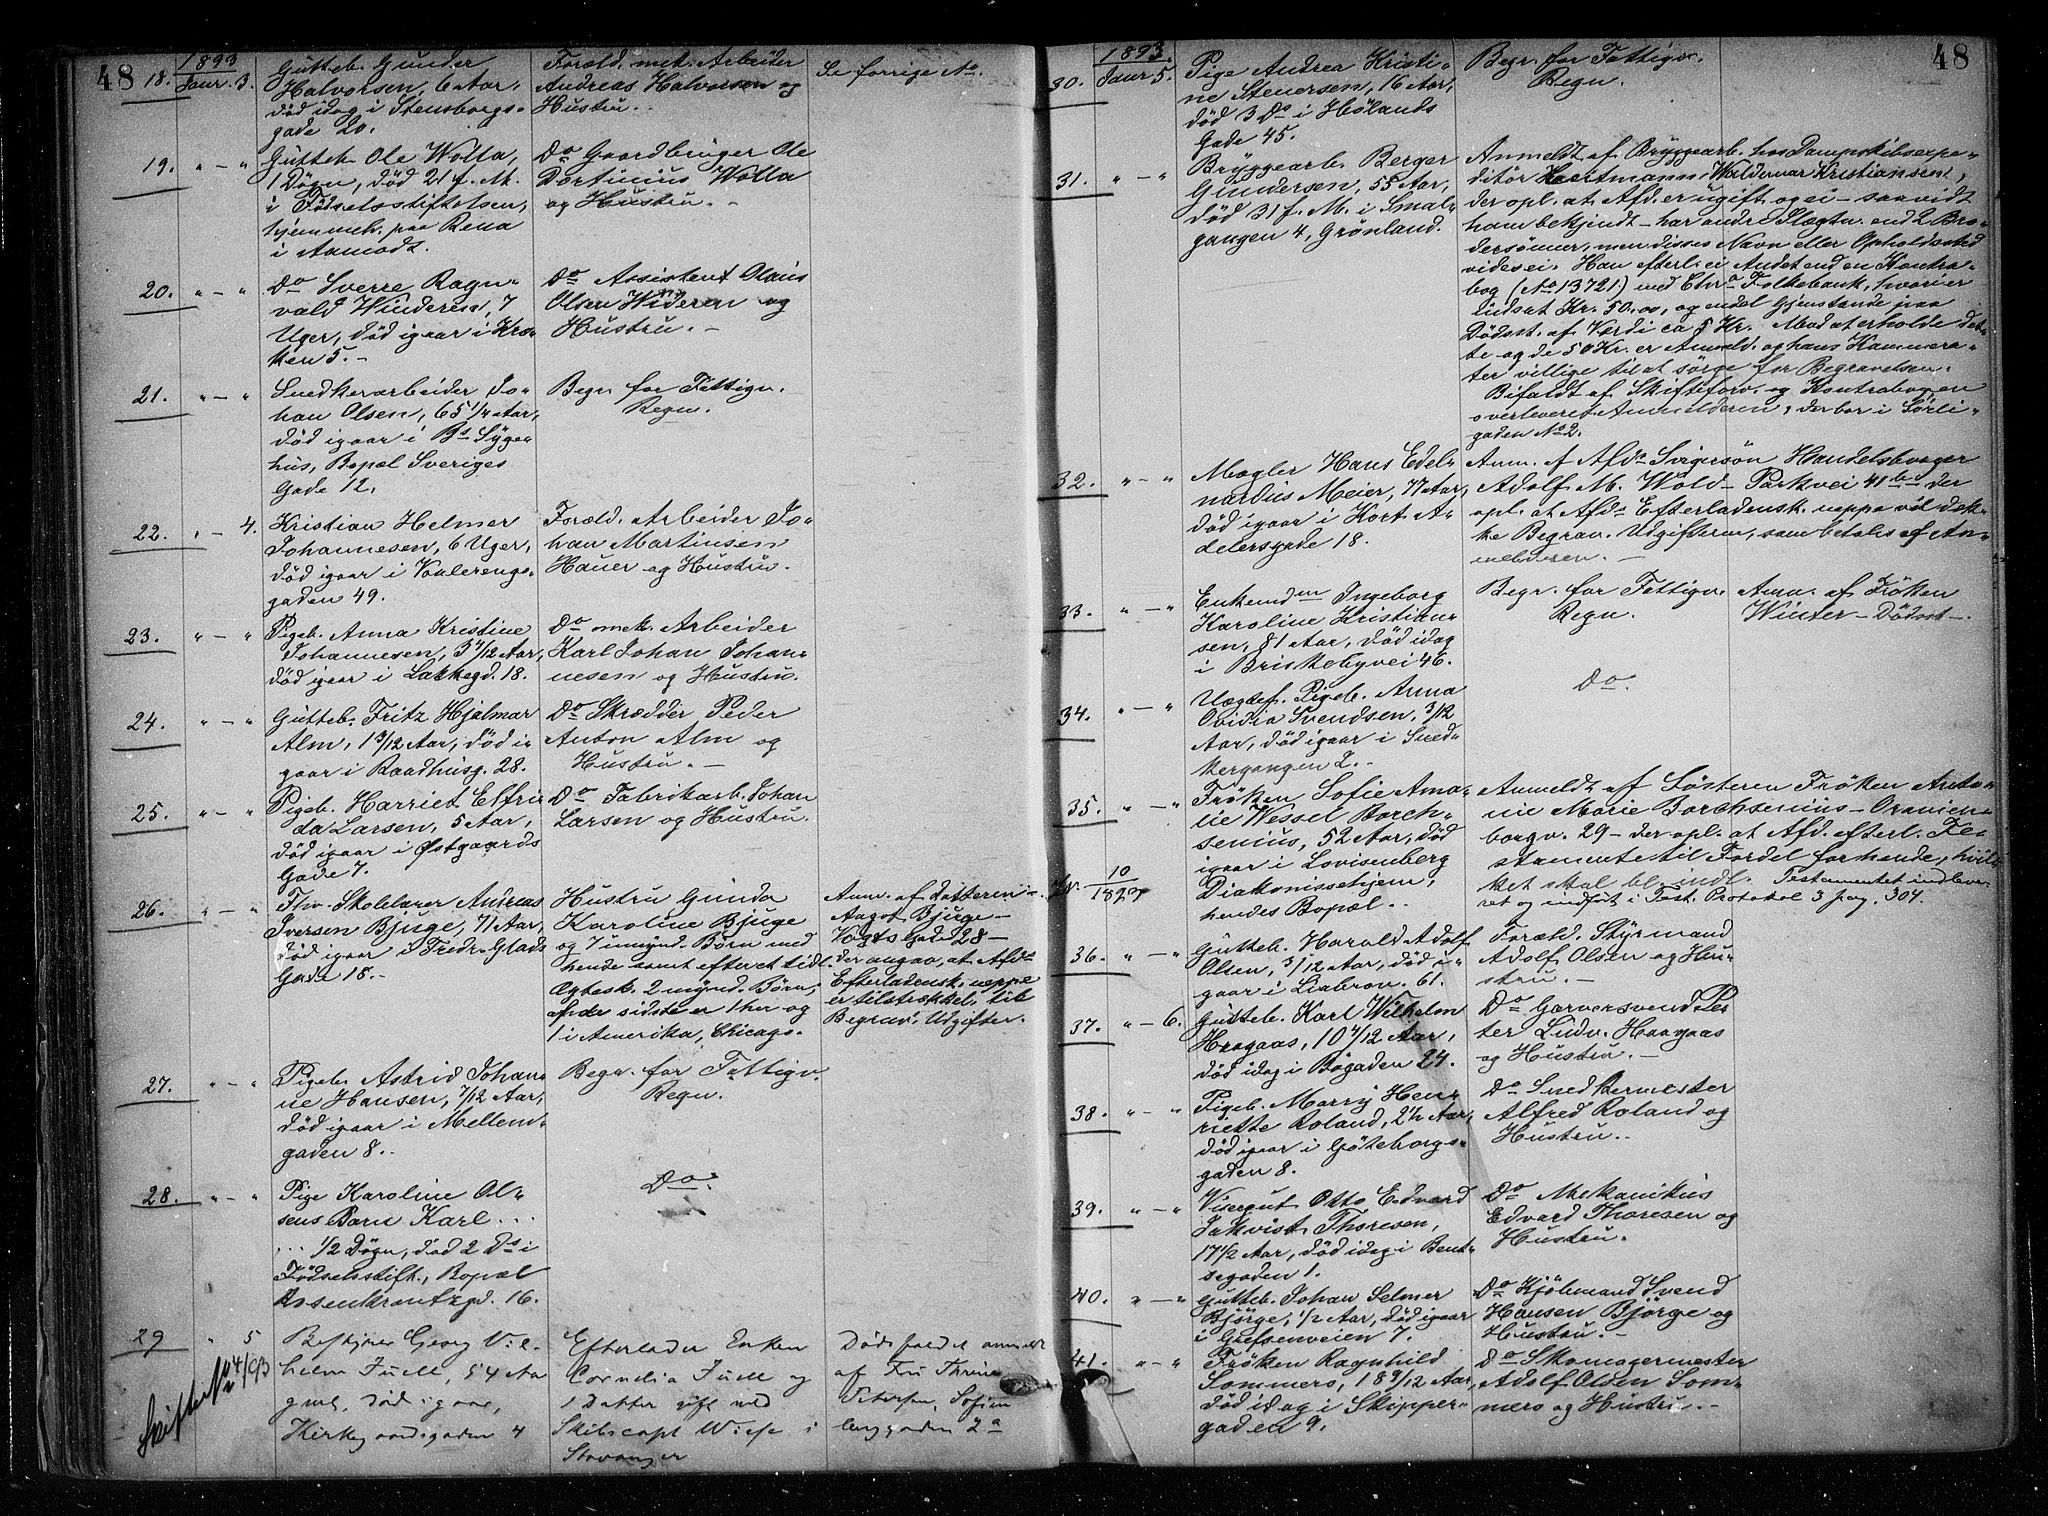 48
1893
18. Janur. 3.
Gutteb. Gunder
Halvorsen, 6 Aar,
død idag i Stensborgs-
gade 20.
Foræld. mek. Arbeider
Andreas Halvorsen og
Hustru.
Se forrige No.
19. " — "
Gutteb. Ole Wolla,
1 Døgn, død 21 f. M.
i Fødselsstiftelsen,
hjemmeh. paa Rena
i Aamodt.
Do Gaardbruger Ole
Dortinius Wolla
og Hustru. –
20. " — "
Do Sverre Ragn-
vald Winderen, 7
Uger, død igaar i Kro-
ken 5. –
Do Assistent Olaus
Olsen Winderen og
Hustru. –
21. " — "
Snedkerarbeider Jo-
han Olsen, 65 1/4 Aar,
død igaar i Bs Syge-
hus, Bopæl Sveriges
Gade 12.
Begr. for Fattigv.
Regn.
22. " — 4.
Kristian Helmer
Johannesen, 6 Uger,
død igaar i Vaalerengs-
gaden 49.
Foræld. Arbeider Jo-
han Martinsen
Hauer og Hustru.
23. " — "
Pigeb. Anna Kristine
Johannesen, 3 4/12 Aar,
død igaar i Lakkegd. 18.
Do mek. Arbeider
Karl Johan Johan-
nesen og Hustru.
24. " — "
Gutteb. Fritz Hjalmar
Alm, 1 3/12 Aar, død i-
gaar i Raadhusg. 28.
Do Skrædder Peder
Anton Alm og
Hustru. –
25. " — "
Pigeb. Harriet Elfri-
da Larsen, 5 Aar,
død igaar i Østgaards
Gade 7.
Do Fabrikarb. Johan
Larsen og Hustru.
26. " — "
Fhv. Skolelærer Andreas
Iversen Bjuge, 71 Aar,
død igaar i Fredr. Glads
Gade 18. –
Hustru Gunda
Karoline Bjuge
og 7 umynd. Børn med
hende samt efter et tidl.
Ægtesk. 2 mynd. Børn,
af de sidste er 1 her og
1 i Amerika, Chicago.
Anm. af Datteren
Aagot Bjuge –
Vogts Gade 28 –
der angav, at Afds
Efterladensk. neppe
er tilstrækkel. til
Begrav. Udgifter.
27. " — "
Pigeb. Astrid Johan-
ne Hansen, 7/12 Aar,
død igaar i Mellem-
gaden 8.
Begr. for Fattigv.
Regn.
28. " — "
Pige Karoline Ol-
sens Barn Karl ...
... 1/2 Døgn, død 2 Ds i
Fødselsstift., Bopæl
Rosenkrantzgd. 16.
Do.
29 " 5
Bestyrer Georg Vil-
helm Juell, 54 Aar
gml, død igaar,
Kirkegaardsgaden 4
Efterlader Enken
Cornelia Juell og
1 Datter gift med
Skibscapt Wiese i
Stavanger
Dødsfaldet anmeldt
af Fru Thrine
Petersen, Sofien-
berggaden 2a
48
1893
30. Janur 5.
Pige Andrea Kristi-
ne Stenersen, 16 Aar,
død 3 Ds i Hølands
Gade 45.
Begr. for Fattigv.
Regn.
31. " — "
Bryggearb. Berger
Gundersen, 55 Aar,
død 31 f. M. i Smal-
gangen 4, Grønland.
Anmeldt af Bryggearb. hos Dampskibsexpe-
ditør Hartmann, Waldemar Kristiansen,
der opl. at Afd. er ugift og ei – saavidt
ham bekjendt – har andre Slægtn. end 2 Bro-
dersønner, men disses Navn eller Opholdssted
vides ei. Han efterl. ei Andet end en Kontra-
bog (No 13721) med Chra Folkebank, hvori er
indsat Kr. 50.00, og endel Gjenstande paa
Dødsst. af Værdi ca 5 Kr. Mod at erholde det-
te og de 50 Kr. er Anmeld. og hans Kammera-
ter villige til at sørge for Begravelsen.
Bifaldt af Skifteforv. og Kontrabogen
overleveret Anmelderen, der bor i Sørli-
gaden No 2.
32. " — "
Mægler Hans Edel-
nardus Meier, 77 Aar,
død igaar i Kort A-
delersgade 18.
Anm. af Afds Svigersøn Handelsborger
Adolf M. Wold – Parkvei 41 bed der
opl. at Afds Efterladensk. neppe vil dek-
ke Begrav. Udgifterne, som betales af An-
melderen. –
33. " — "
Enkemdm Ingeborg
Karoline Kristian-
sen, 81 Aar, død idag
i Briskebyvei 46.
Begr. for Fattigv.
Regn.
Anm. af Frøken
Winter – Dødsst –.
34. " — "
Uægtef. Pigeb. Anna
Ovidia Svendsen, 3/12
Aar, død igaar i Sned-
kergangen 2. –
Do.
35. " — "
Frøken Sofie Ama-
lie Wessel Borch-
senius, 52 Aar, død
igaar i Lovisenberg
Diakonissehjem,
hendes Bopæl.
Anmeldt af Søsteren Frøken Anto-
nie Marie Borchsenius – Oranien-
borgv. 29 – der opl. at Afd. efterl. Te-
stamente til Fordel for hende, hvil-
ket skal bli indl. Testamentet indleve-
ret og indført i Test. Protokol 3 pag. 304.
36. " — "
Gutteb. Harald Adolf
Olsen, 3/12 Aar, død i-
gaar i Liabron. 61.
Foræld. Styrmand
Adolf Olsen og Hu-
stru. –
37. " — 6.
Gutteb. Karl Wilhelm
Haagaas, 10 4/12 Aar,
død idag i Bøgaden 24.
Do Garversvend Pe-
ter Ludv. Haagaas
og Hustru. –
38. " — "
Pigeb. Marry Hen-
riette Roland, 2 1/2 Aar,
død igaar i Göteborgs-
gaden 8.
Do Snedkermester
Alfred Roland og
Hustru.
39. " — "
Visergut Otto Edvard
Thoresen,
17 1/2 Aar, død idag i Bent-
segaden 1.
Do Mekanikus
Edvard Thoresen og
Hustru.
40. " — "
Gutteb. Johan Selmer
Bjørge, 1/2 Aar, død igaar
i Grefsenveien 7.
Do Kjøbmand Svend
Hansen Bjørge og
Hustru. –
41. " — "
Frøken Ragnhild
Sommers, 18 9/12 Aar,
død idag i Skipper-
gaden 9.
Do Skomagermester
Adolf Olsen Som-
mers og Hustru. –